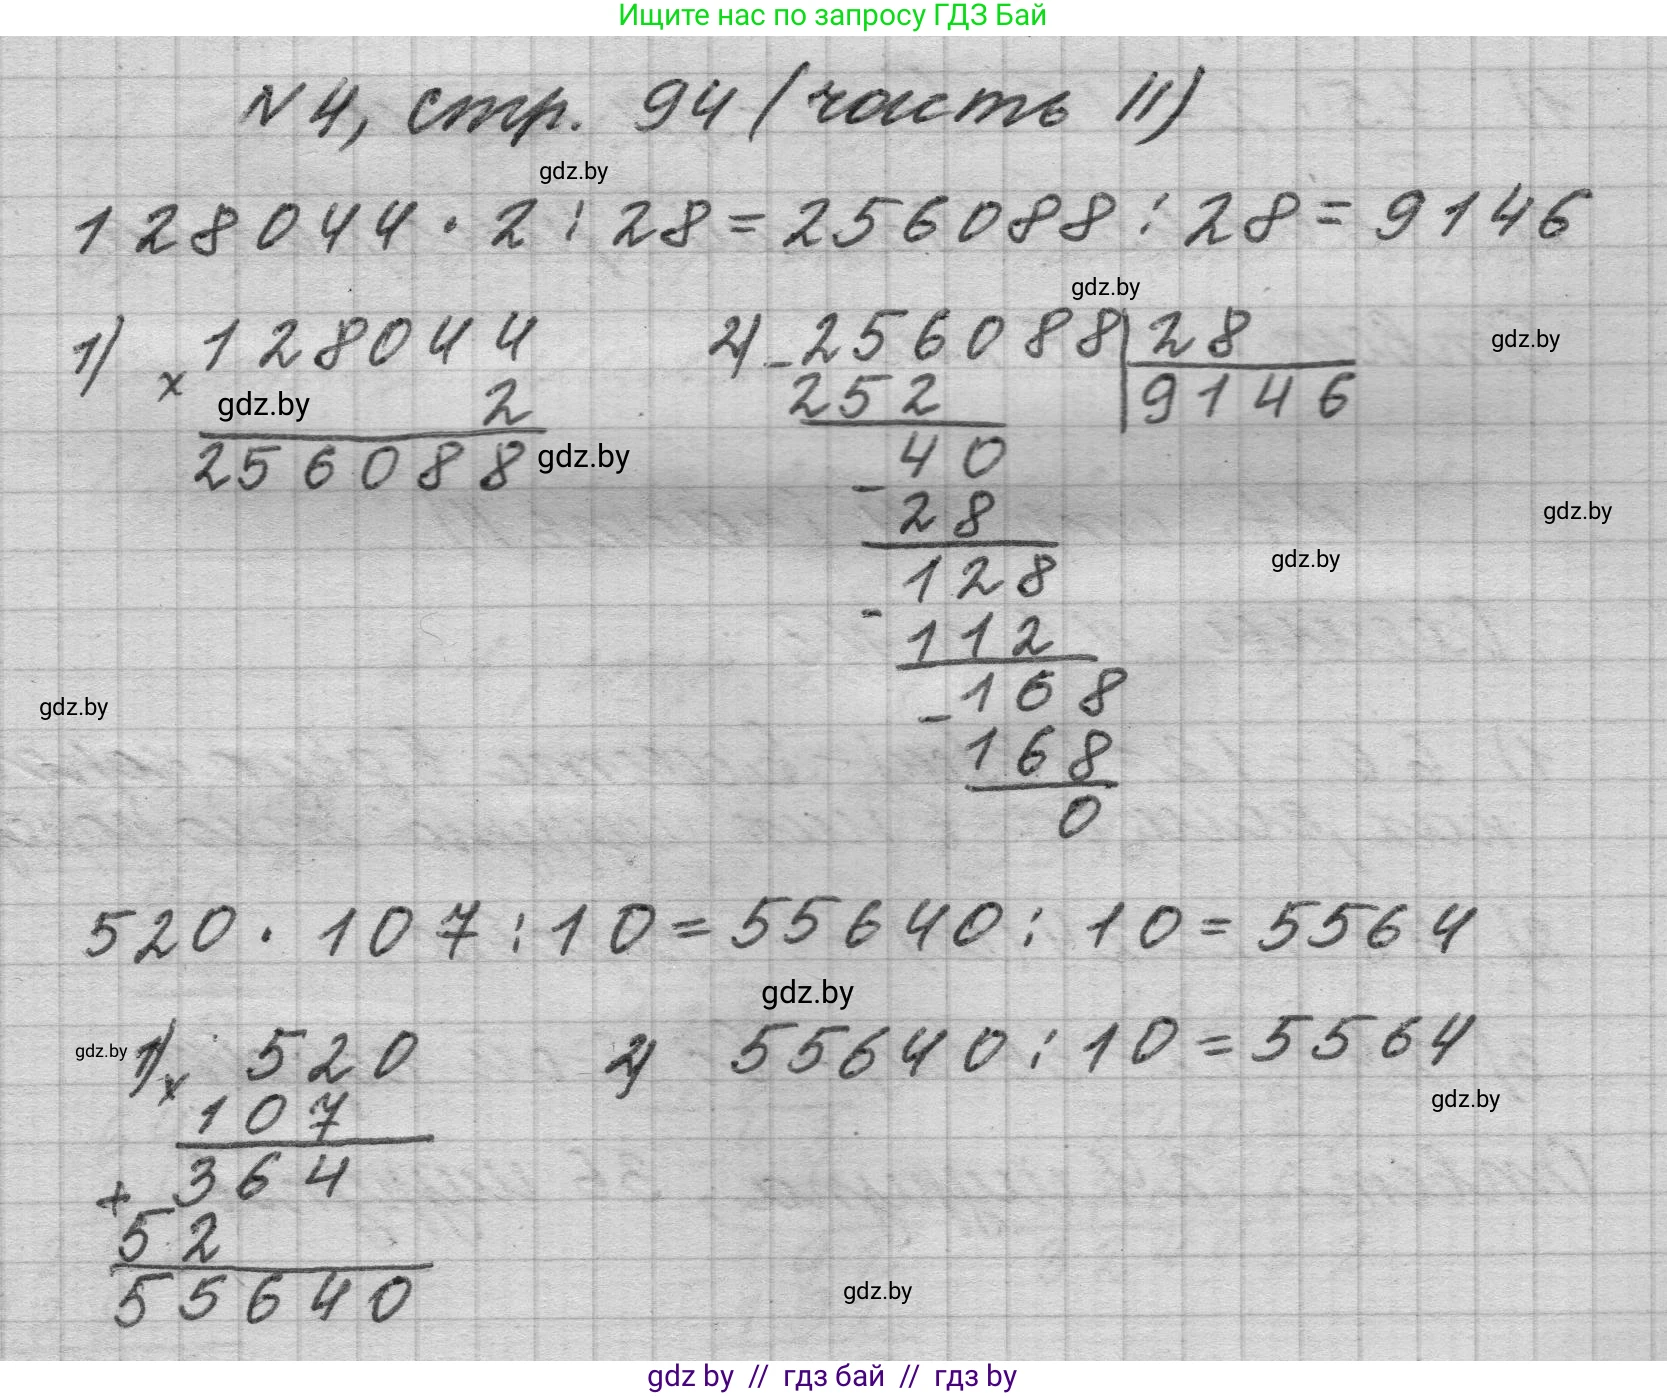 Ищите нас по запросу ГДЗ Бай
N 4, стр. 94 (часть II)
gdz.by
128044 · 2 : 28 = 256088 : 28 = 9146
gdz.by
1) x 128044
2
256088
gdz.by
gdz.by
2) - 256088 | 28
9146
252
40
- 28
128
- 112
168
- 168
0
gdz.by
gdz.by
gdz.by
gdz.by
520 · 107 : 10 = 55640 : 10 = 5564
gdz.by
gdz.by
1) x 520
107
364
+ 52
55640
2) 55640 : 10 = 5564
gdz.by
gdz.by
gdz by // гдз бай // гдз by